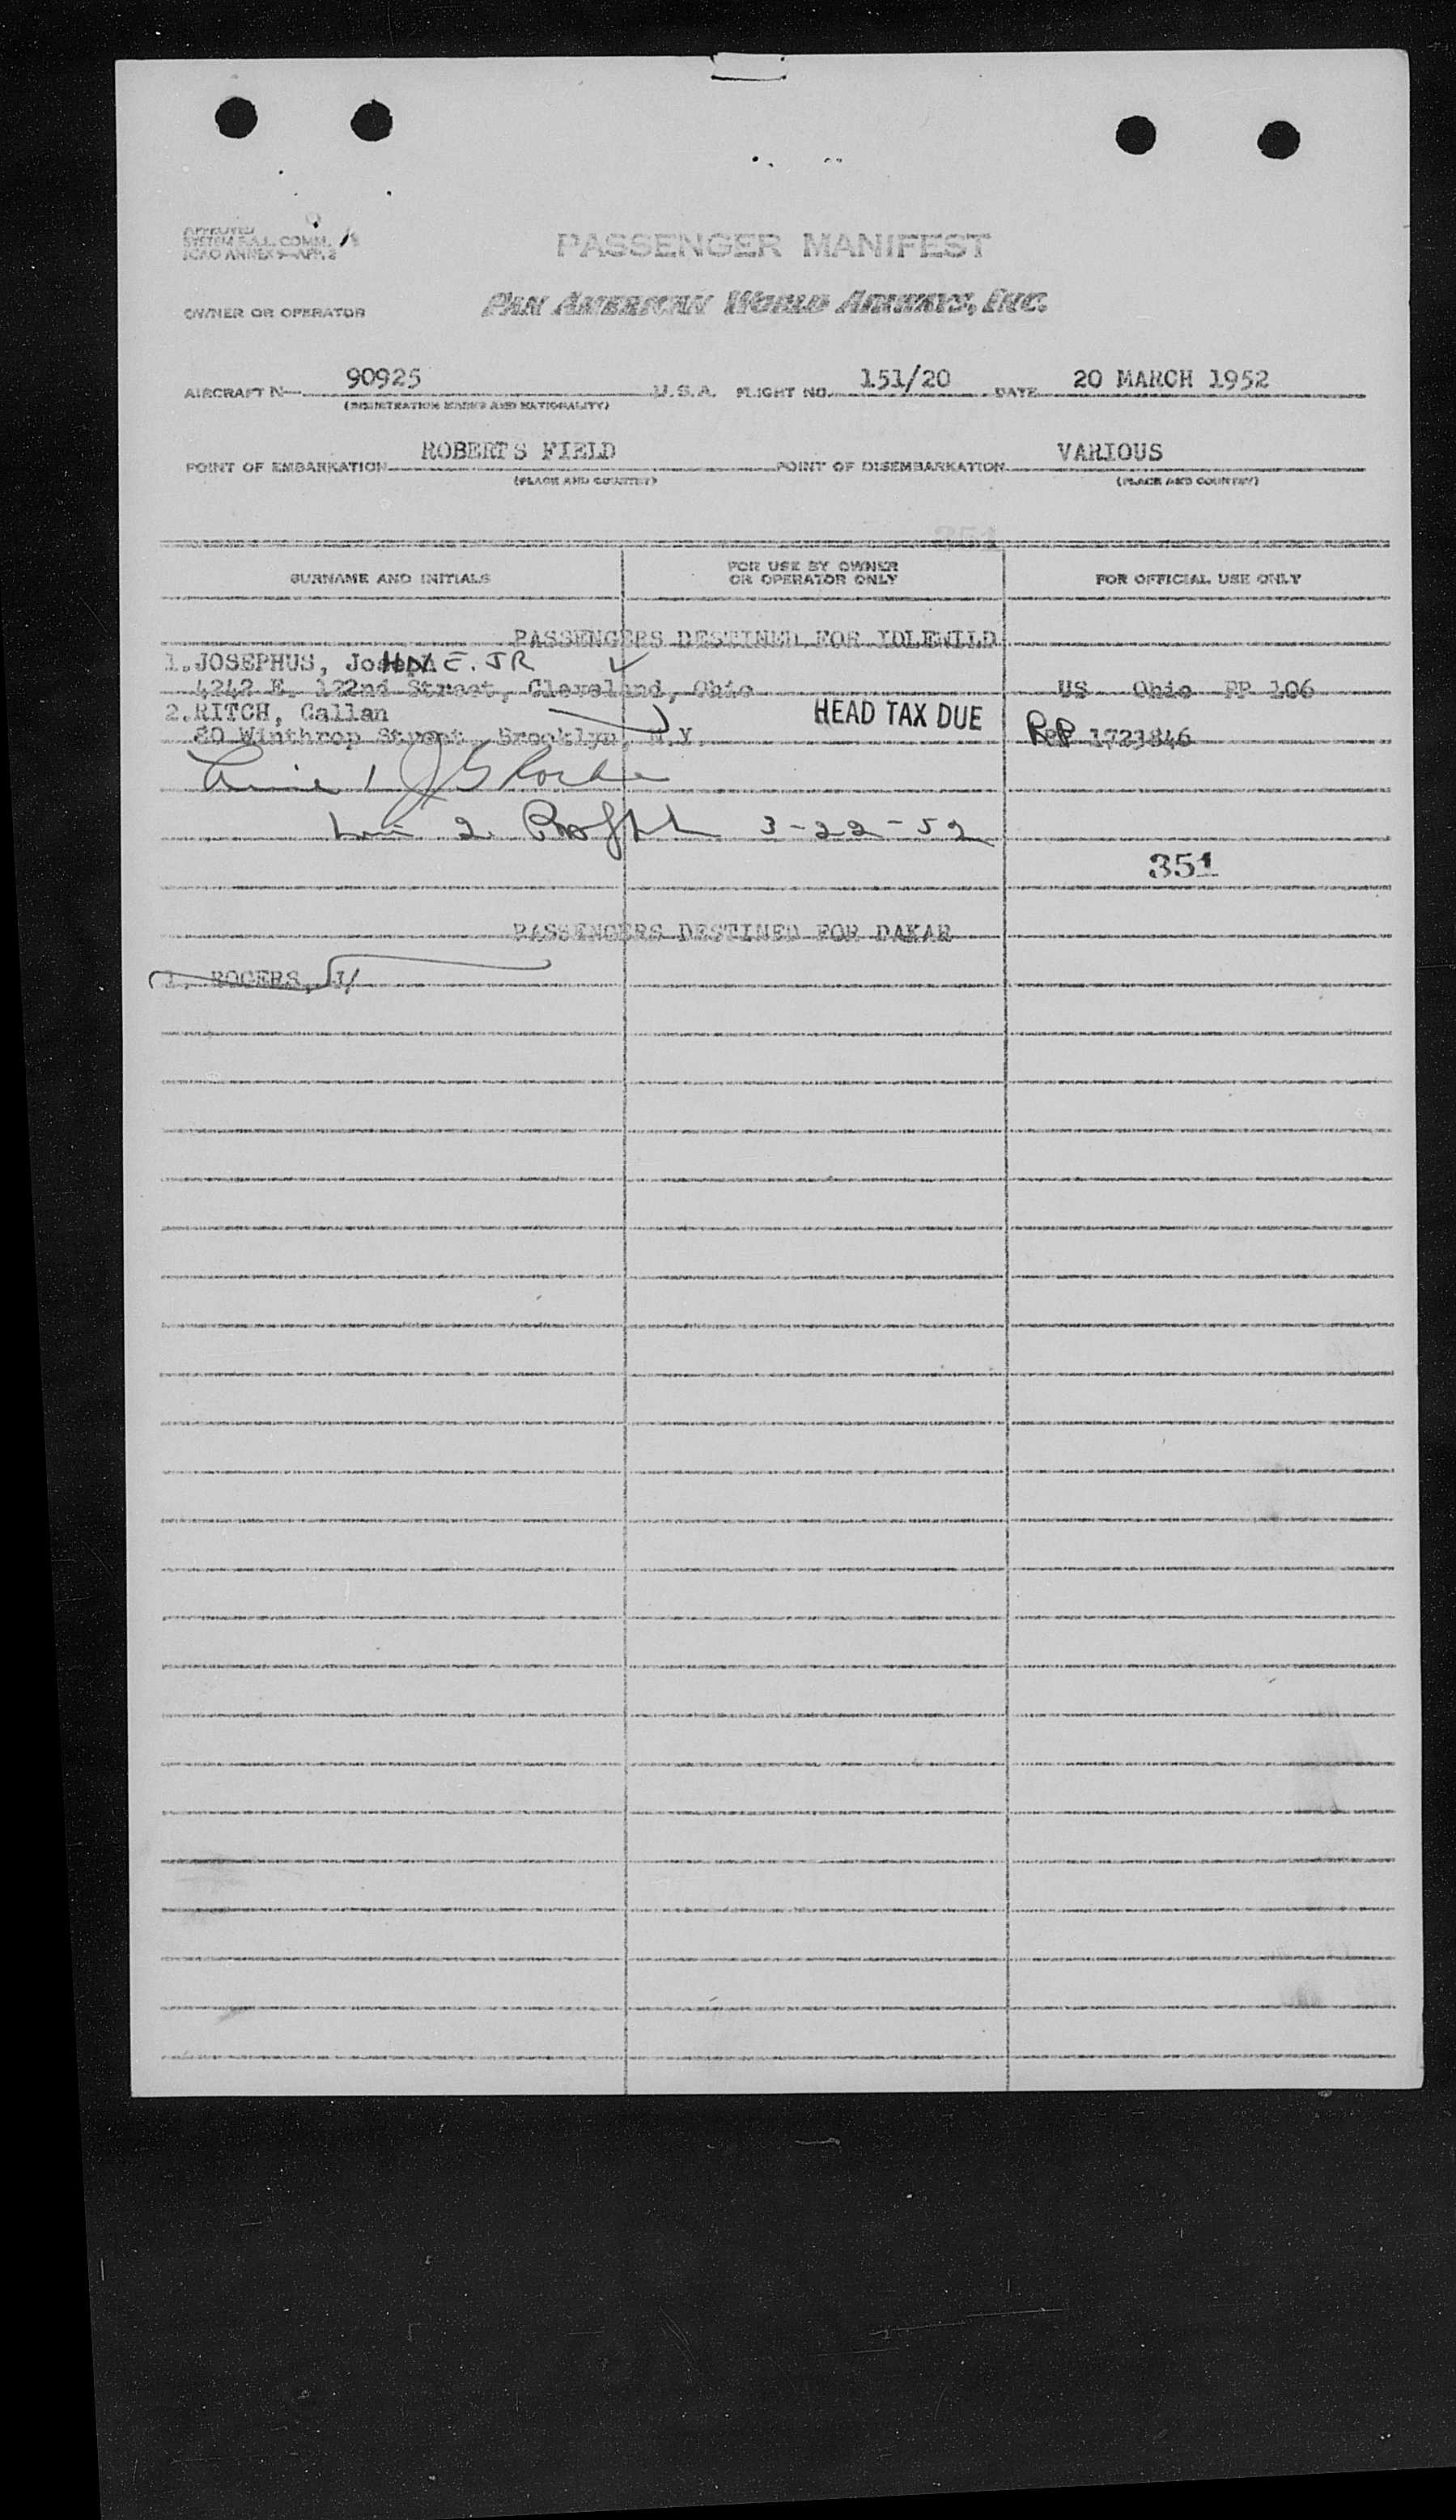 APPROVED
SYSTEM F.A.L. COMM.
ICAO ANNEX 9—APP. 2
PASSENGER MANIFEST
OWNER OR OPERATOR PAN AMERICAN WORLD AIRWAYS, INC.
AIRCRAFT N— 90925 U.S.A. FLIGHT NO. 151/20 DATE 20 MARCH 1952
(REGISTRATION MARKS AND NATIONALITY)
POINT OF EMBARKATION ROBERTS FIELD POINT OF DISEMBARKATION VARIOUS
(PLACE AND COUNTRY) (PLACE AND COUNTRY)
351
SURNAME AND INITIALS FOR USE BY OWNER OR OPERATOR ONLY FOR OFFICIAL USE ONLY
PASSENGERS DESTINED FOR IDLEWILD
1. JOSEPHUS, JOHN E. JR
4242 E. 122nd Street, Cleveland, Ohio US Ohio PP 106
2. RITCH, Callan HEAD TAX DUE
80 Winthrop Street, Brooklyn, N.Y. 1723846
Line 1
Line 2. 3-22-52
351
PASSENGERS DESTINED FOR DAKAR
1. ROGERS, J/